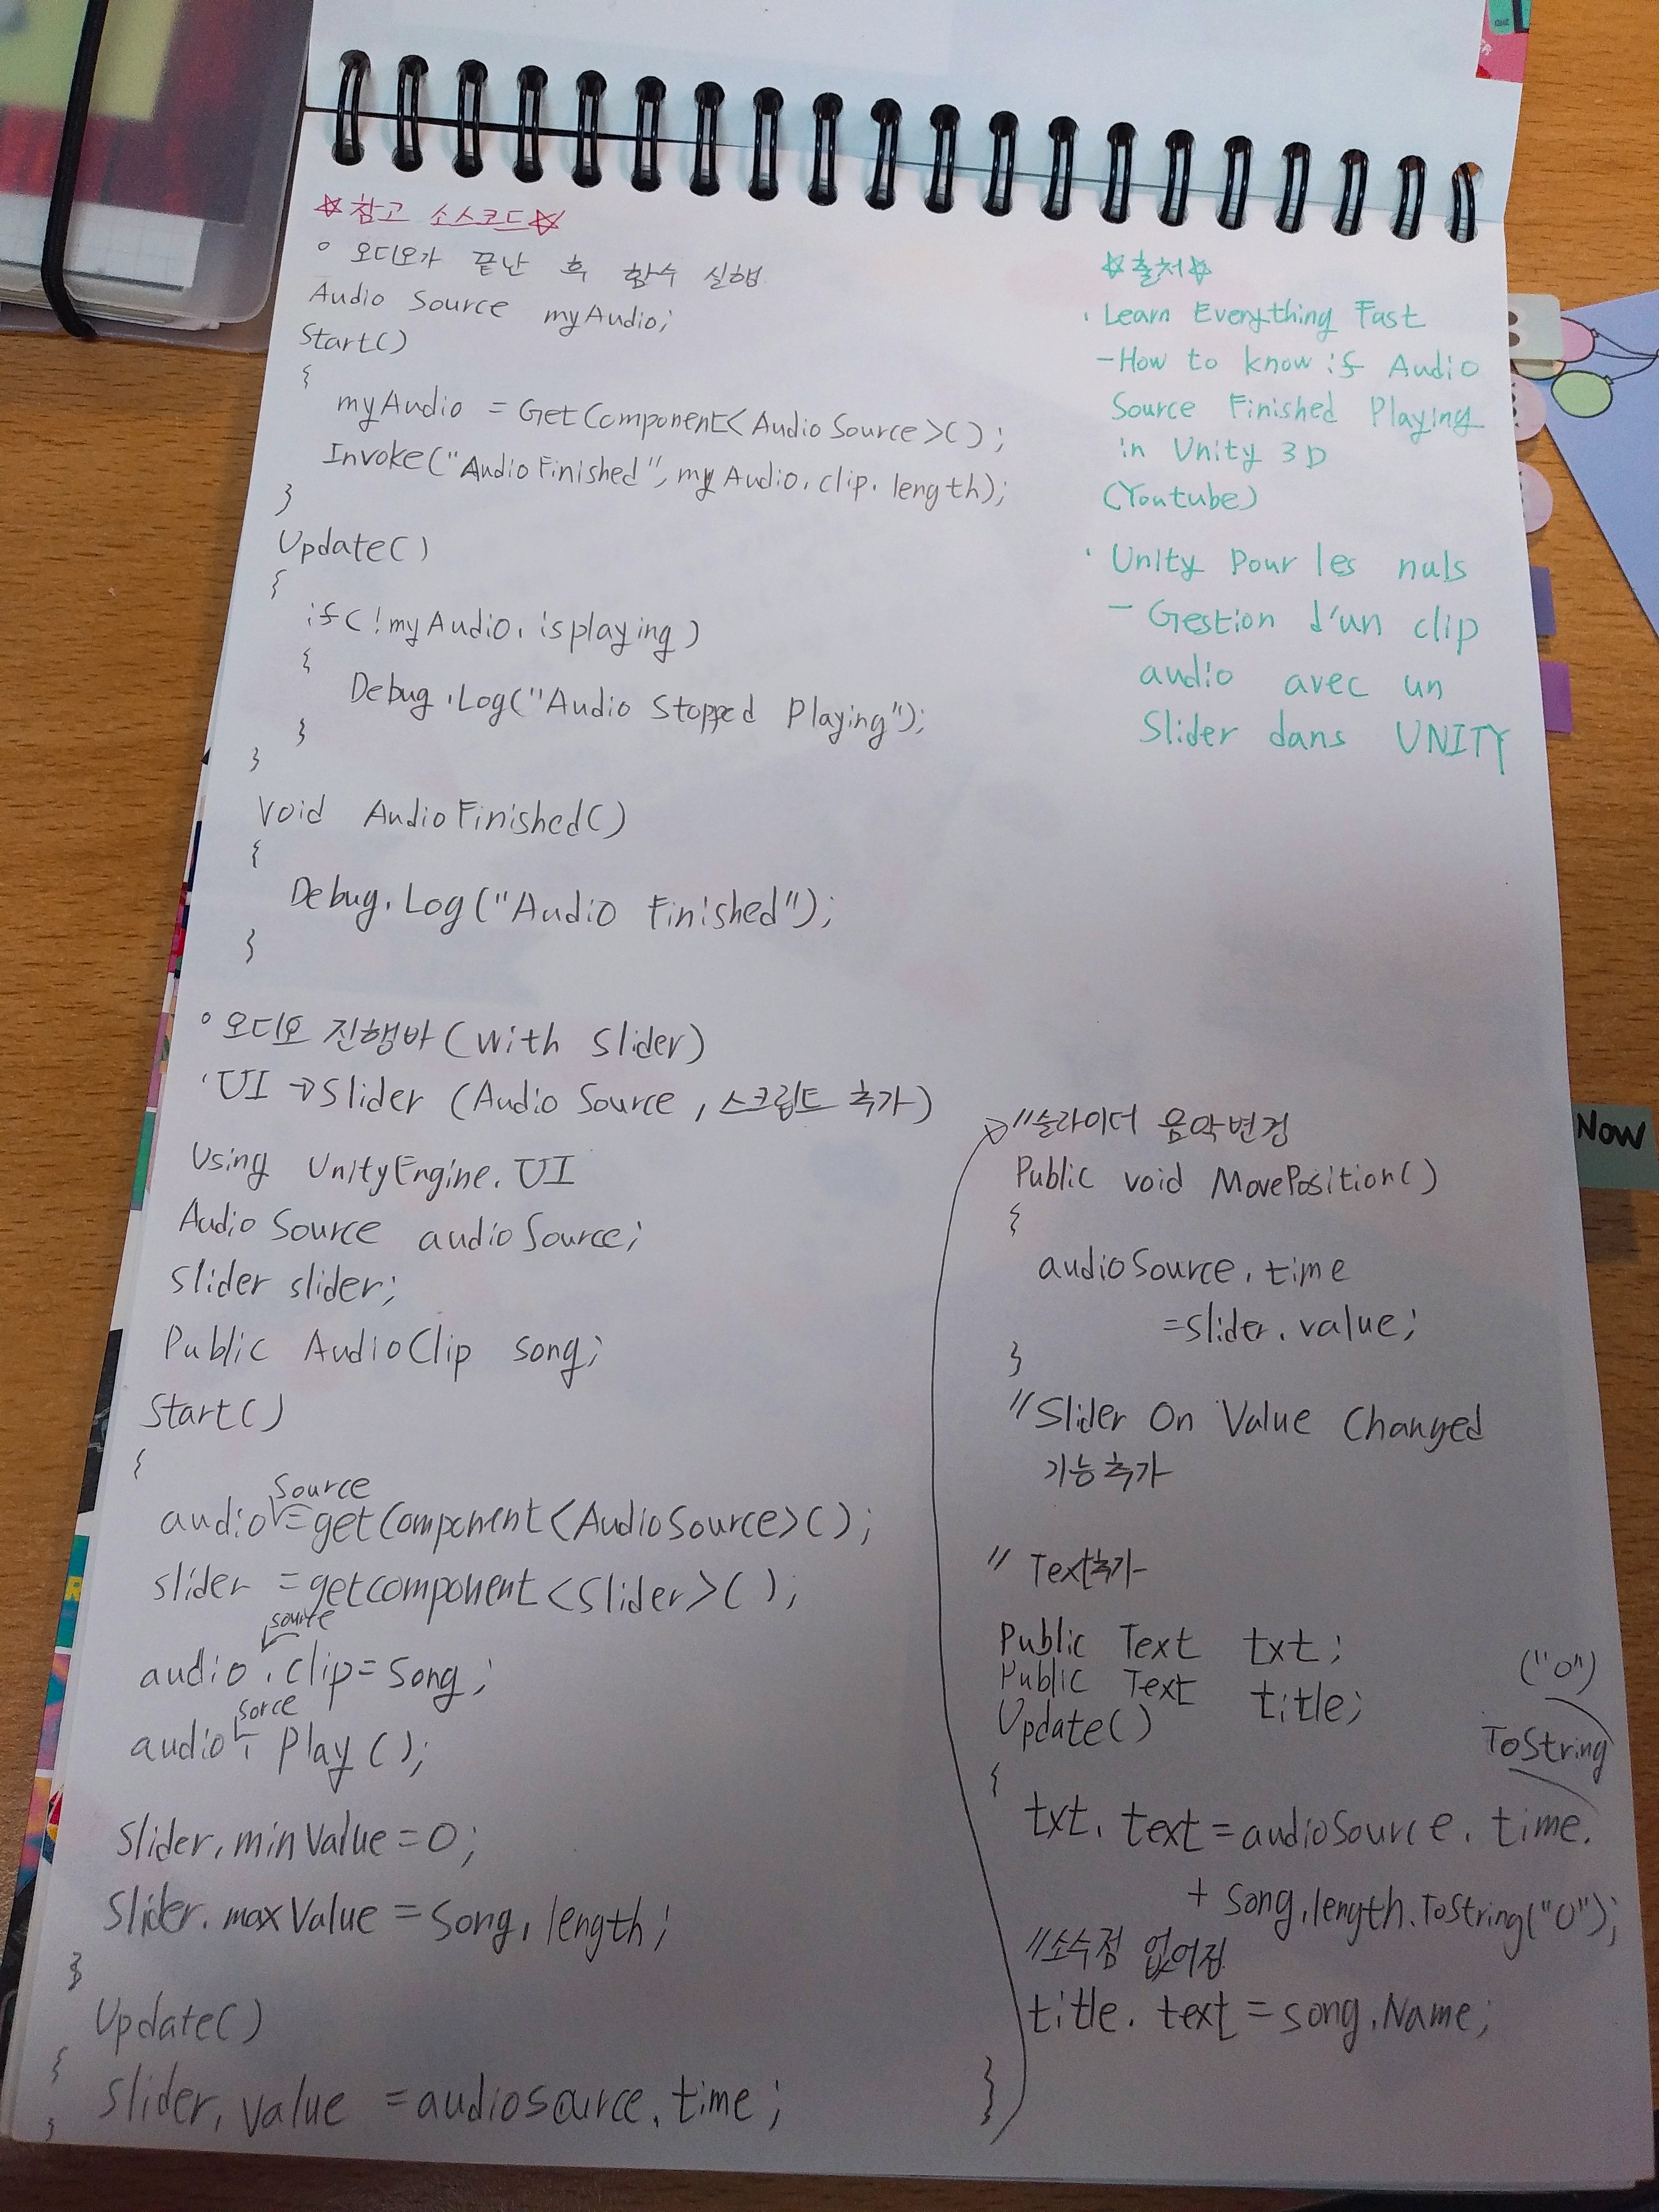 ☆참고 소스코드☆
° 오디오가 끝난 후 함수 실행
Audio Source myAudio;
Start()
{
myAudio = GetComponent<AudioSource>();
Invoke("AudioFinished", myAudio.clip.length);
}
Update()
{
if(!myAudio.isplaying)
{
Debug.Log("Audio Stopped Playing");
}
}
Void AudioFinished()
{
Debug.Log("Audio Finished");
}
☆출처☆
· Learn Everything Fast
- How to know if Audio
Source Finished Playing
in Unity 3D
(Youtube)
· Unity Pour les nuls
- Gestion d'un clip
audio avec un
Slider dans UNITY
° 오디오 진행바(with Slider)
· UI → Slider (Audio Source, 스크립트 추가)
Using UnityEngine.UI
AudioSource audioSource;
Slider slider;
Public AudioClip song;
Start()
{
Source
audio = getComponent<AudioSource>();
slider = getcomponent<Slider>();
source
audio.clip = song;
sorce
audio. Play();
Slider.minValue = 0;
Slider.maxValue = song.length;
}
Update()
{
Slider.value = audiosource.time;
}
//슬라이더 음악변경
Public void MovePosition()
{
audioSource.time
= slider.value;
}
//Slider On Value Changed
기능추가
// Text추가
Public Text txt;
Public Text title;
Update()
{
("0")
ToString
txt. text = audioSource. time.
+ song.length.ToString("0");
//소수점 없어짐
title. text = song.Name;
}
Now